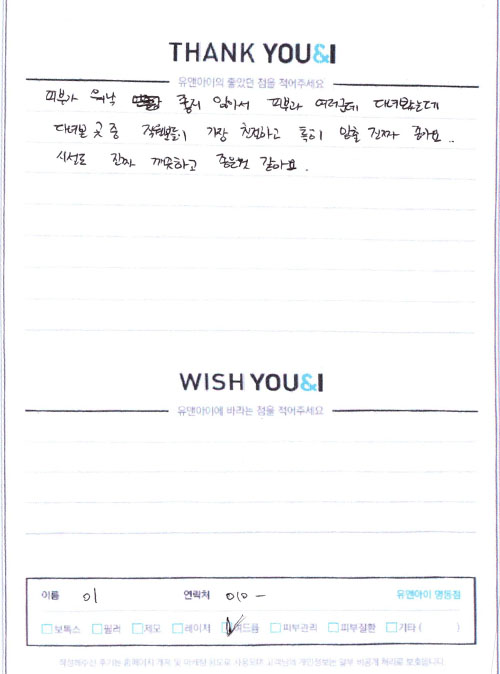 THANK YOU&I
유앤아이의 좋았던 점을 적어주세요
피부가 워낙 좋지 않아서 피부과 여러군데 다녀봤는데
다녀본 곳 중 직원분들이 가장 친절하고 특히 압출 진짜 좋아요..
시설도 진짜 깨끗하고 좋은것 같아요.
WISH YOU&I
유앤아이에 바라는 점을 적어주세요
이름 이 연락처 010 - 유앤아이 명동점
보톡스 필러 제모 레이저 여드름 피부관리 피부질환 기타 ( )
작성해주신 후기는 홈페이지 게재 및 마케팅 용도로 사용되며 고객님의 개인정보는 일부 비공개 처리로 보호됩니다.